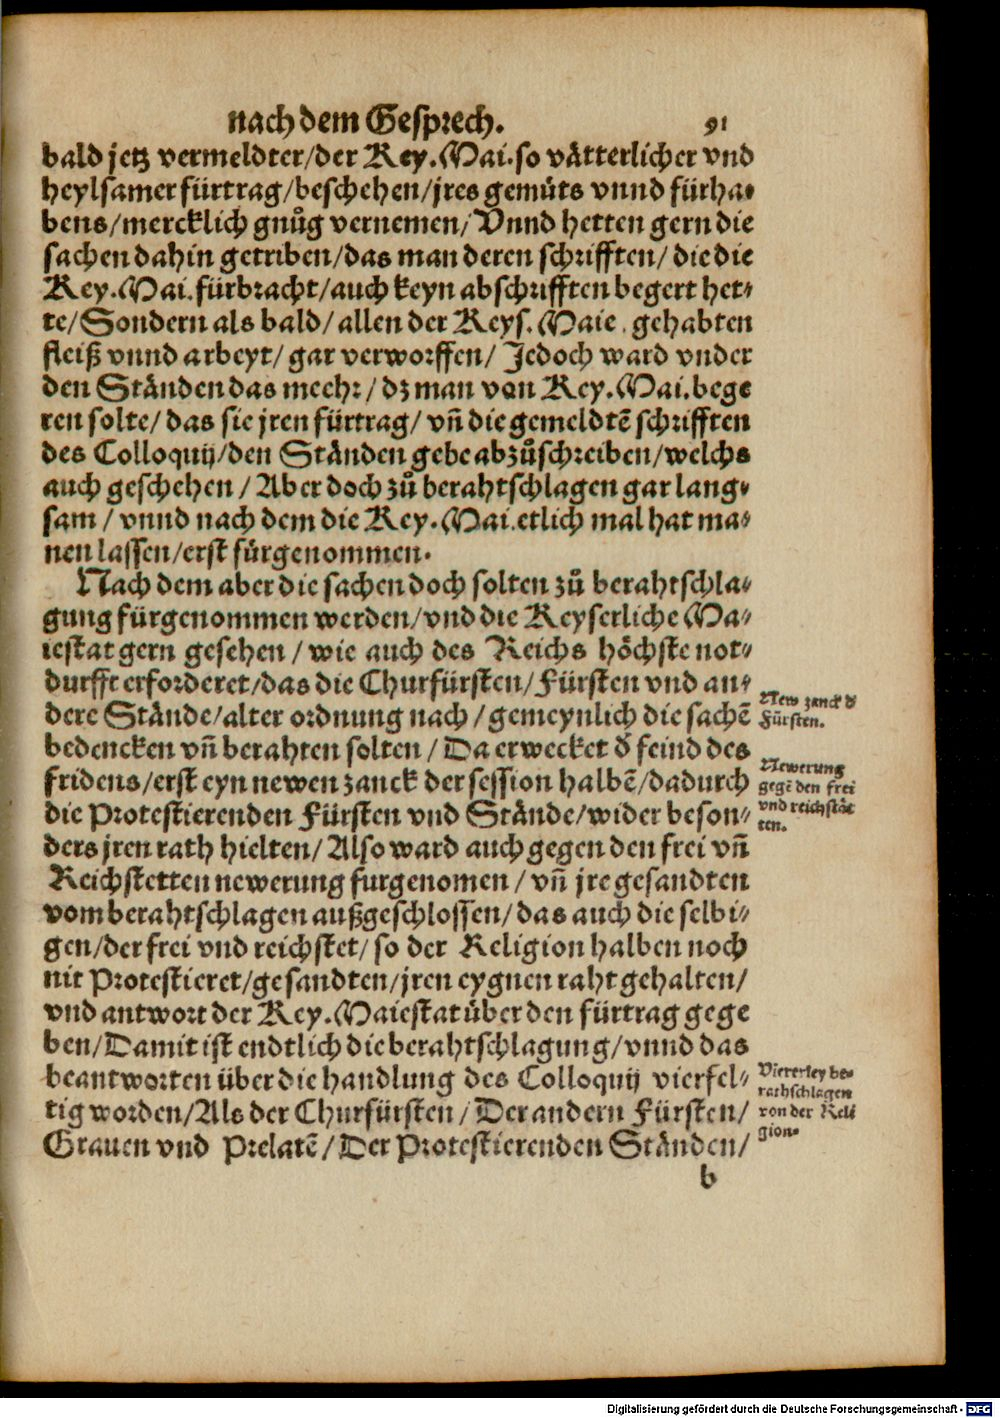 nach dem Gesprech. 91
bald jetz vermeldter/der Key.Mai.so vätterlicher vnd
heylsamer fürtrag/beschehen/jres gemüts vnnd fürha⸗
bens/mercklich gnůg vernemen/Vnnd hetten gern die
sachen dahin getriben/das man deren schrifften/die die
Key.Mai.fürbracht/auch keyn abschrifften begert het⸗
te/Sondern als bald/allen der Keys.Maie.gehabten
fleiß vnnd arbeyt/gar verworffen/Jedoch ward vnder
den Ständen das meehr/dz man von Key.Mai.bege
ren solte/das sie jren fürtrag/vñ die gemeldtē schrifften
des Colloquij/den Ständen gebe abzůschreiben/welchs
auch geschehen/Aber doch zů berahtschlagen gar lang⸗
sam/vnnd nach dem die Key.Mai.etlich mal hat ma⸗
nen lassen/erst fürgenommen.
Nach dem aber die sachen doch solten zů berahtschla⸗
gung fürgenommen werden/vnd die Keyserliche Ma⸗
iestat gern gesehen/wie auch des Reichs höchste not⸗
durfft erforderet/das die Churfürsten/Fürsten vnd an⸗
dere Stände/alter ordnung nach/gemeynlich die sachē
bedencken vñ berahten solten/Da erwecket d̕ feind des
fridens/erst eyn newen zanck der session halbē/dadurch
die Protestierenden Fürsten vnd Stände/wider beson⸗
ders jren rath hielten/Also ward auch gegen den frei vñ
Reichstetten newerung furgenomen/vñ jre gesandten
vom berahtschlagen außgeschlossen/das auch die selbi⸗
gen/der frei vnd reichstet/so der Religion halben noch
nit Protestieret/gesandten/jren eygnen raht gehalten/
vnd antwort der Key.Maiestat über den fürtrag gege
ben/Damit ist endtlich die berahtschlagung/vnnd das
beantworten über die handlung des Colloquij vierfel⸗
tig worden/Als der Churfürsten/Der andern Fürsten/
Grauen vnd Prelatē/Der Protestierenden Ständen/
b
New zanck d̕
Fürsten.
Newerung
gegē den frei
vnd reichstäe
ten.
Viererley be⸗
rathschlagen
von der Reli
gion⸗
Digitalisierung gefördert durch die Deutsche Forschungsgemeinschaft - DFG